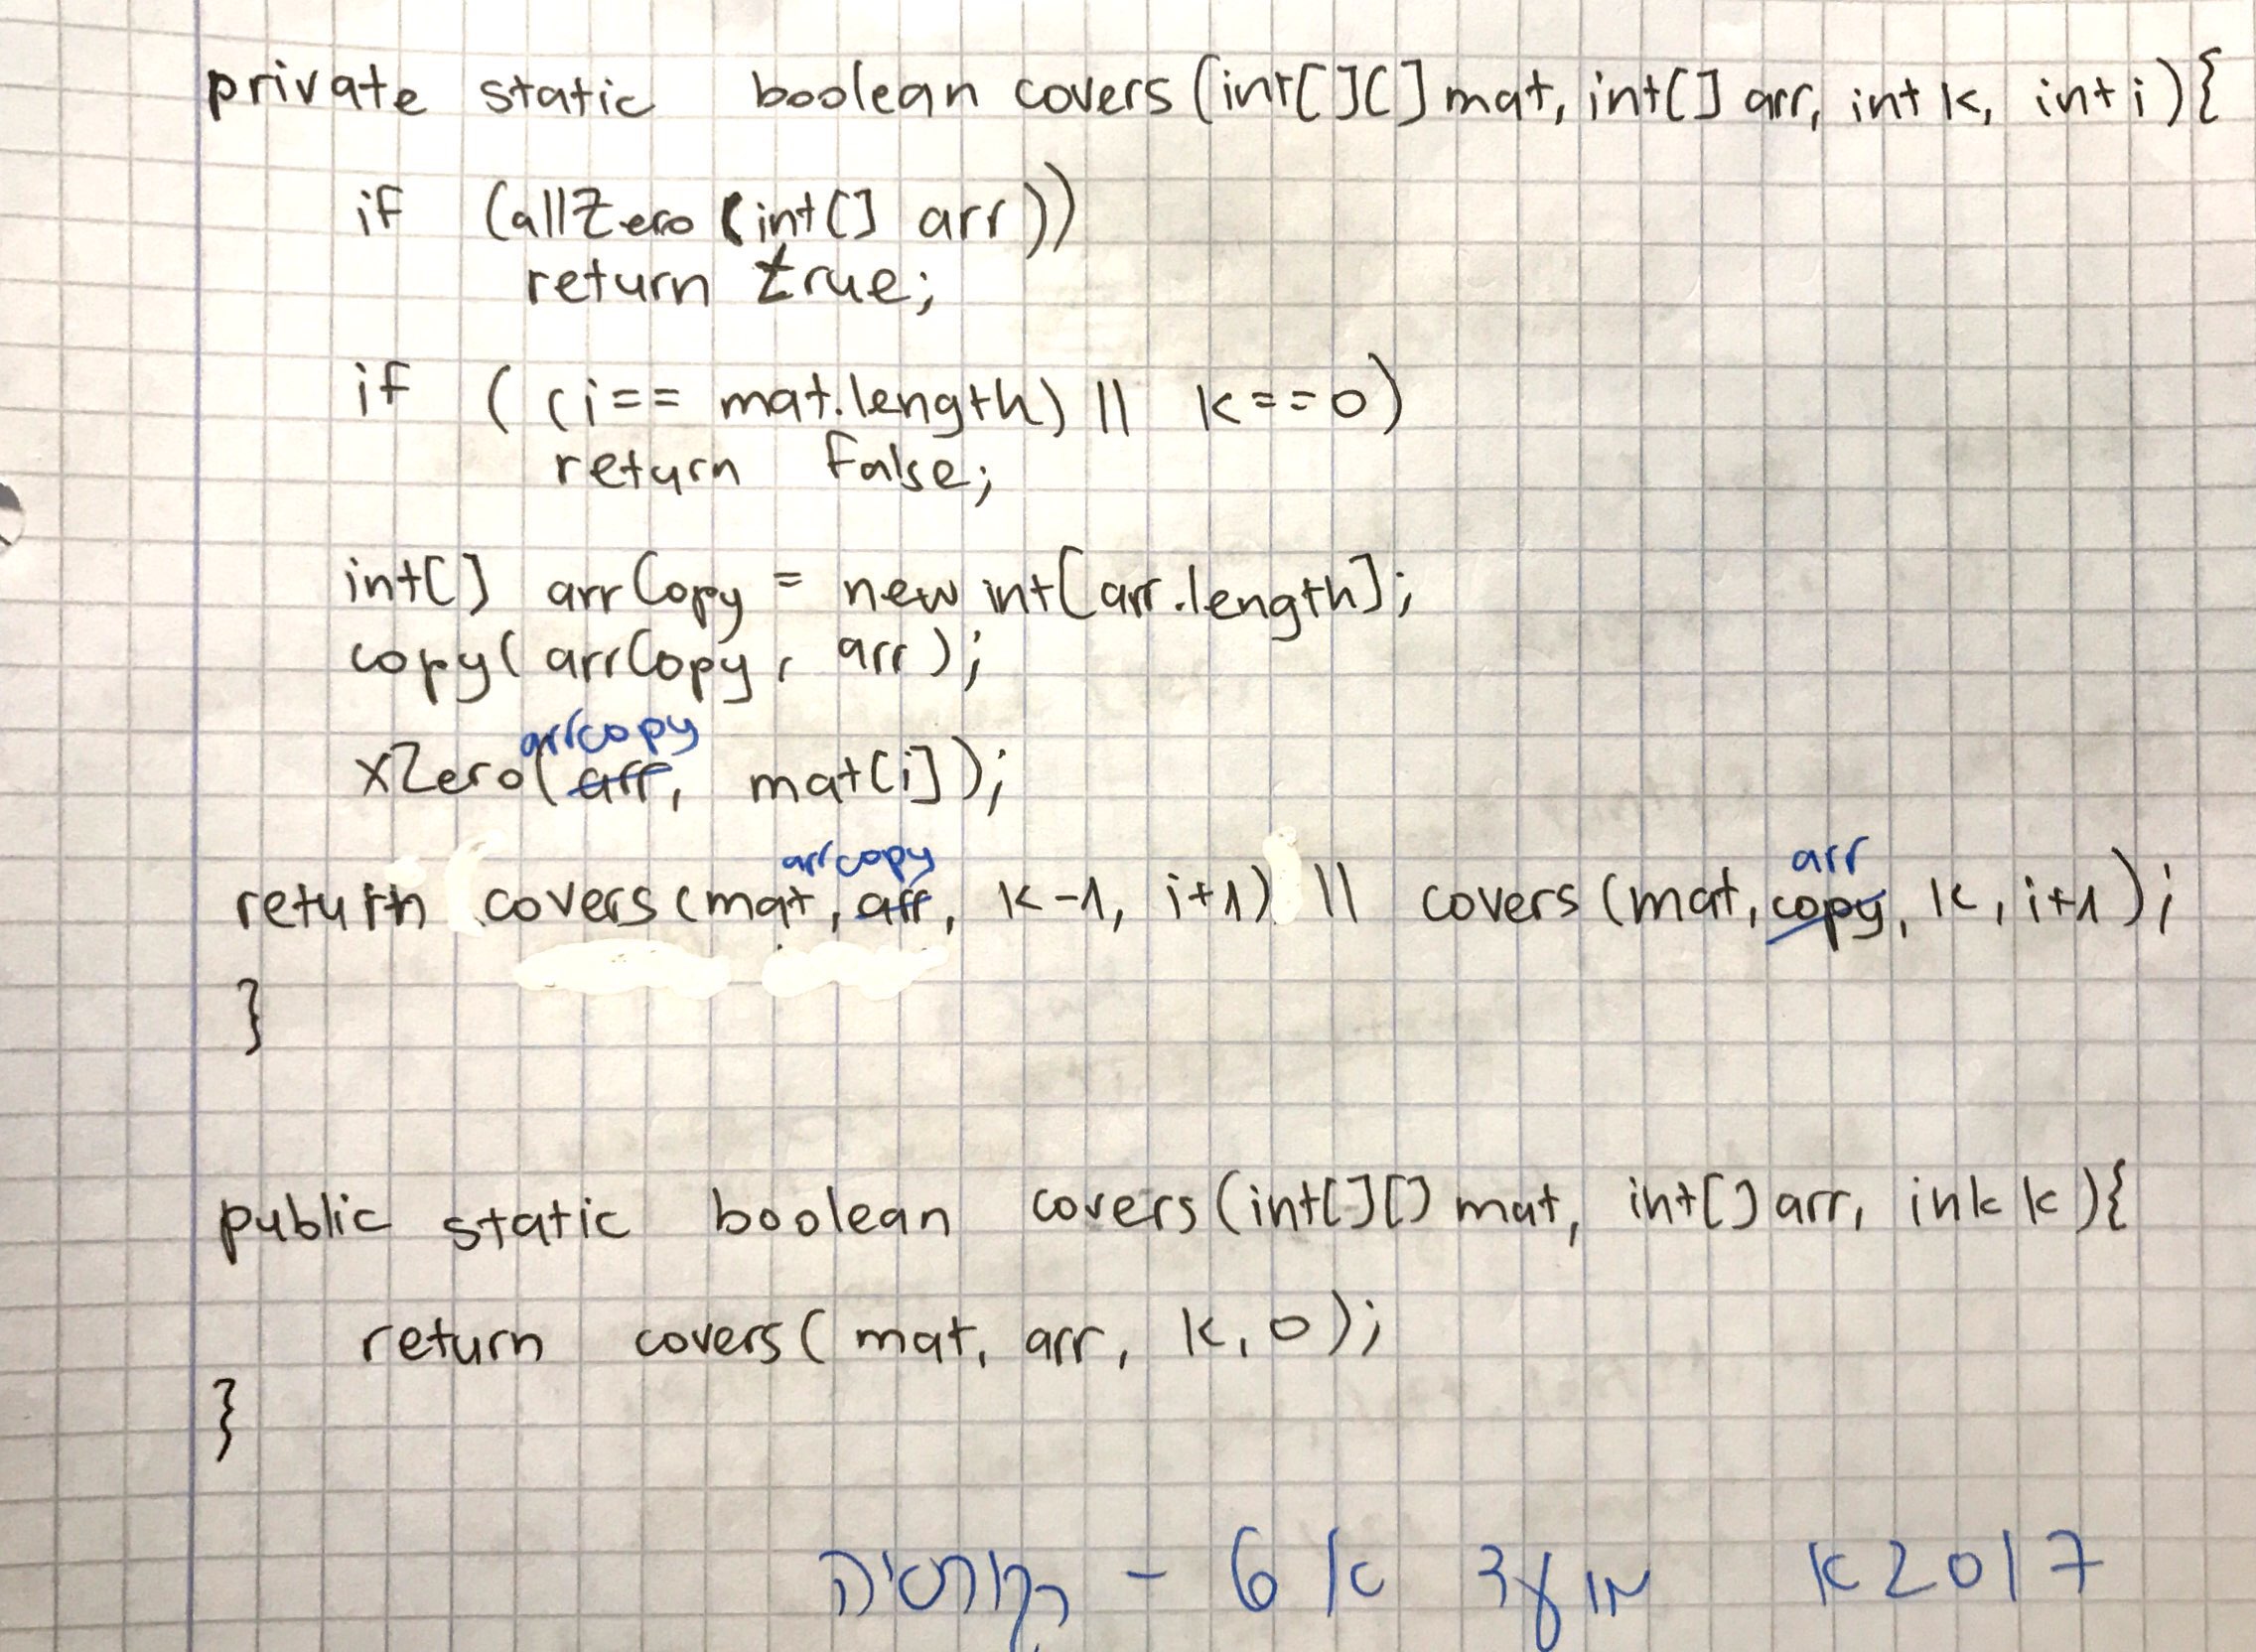 private static boolean covers (int[][] mat, int[] arr, int k, int i){
if (allZero (int[] arr))
return true;
if ((i== mat.length) || k==0)
return false;
int[] arrCopy = new int[arr.length];
copy( arrCopy, arr );
arrcopy
xZero(arr, mat[i]);
arrcopy arr
return covers (mat, arr, k-1, i+1) || covers (mat, copy, k, i+1);
}
public static boolean covers (int[][] mat, int[] arr, ink k){
return covers( mat, arr, k, 0);
}
2017 א מועד א 6 - רקורסיה